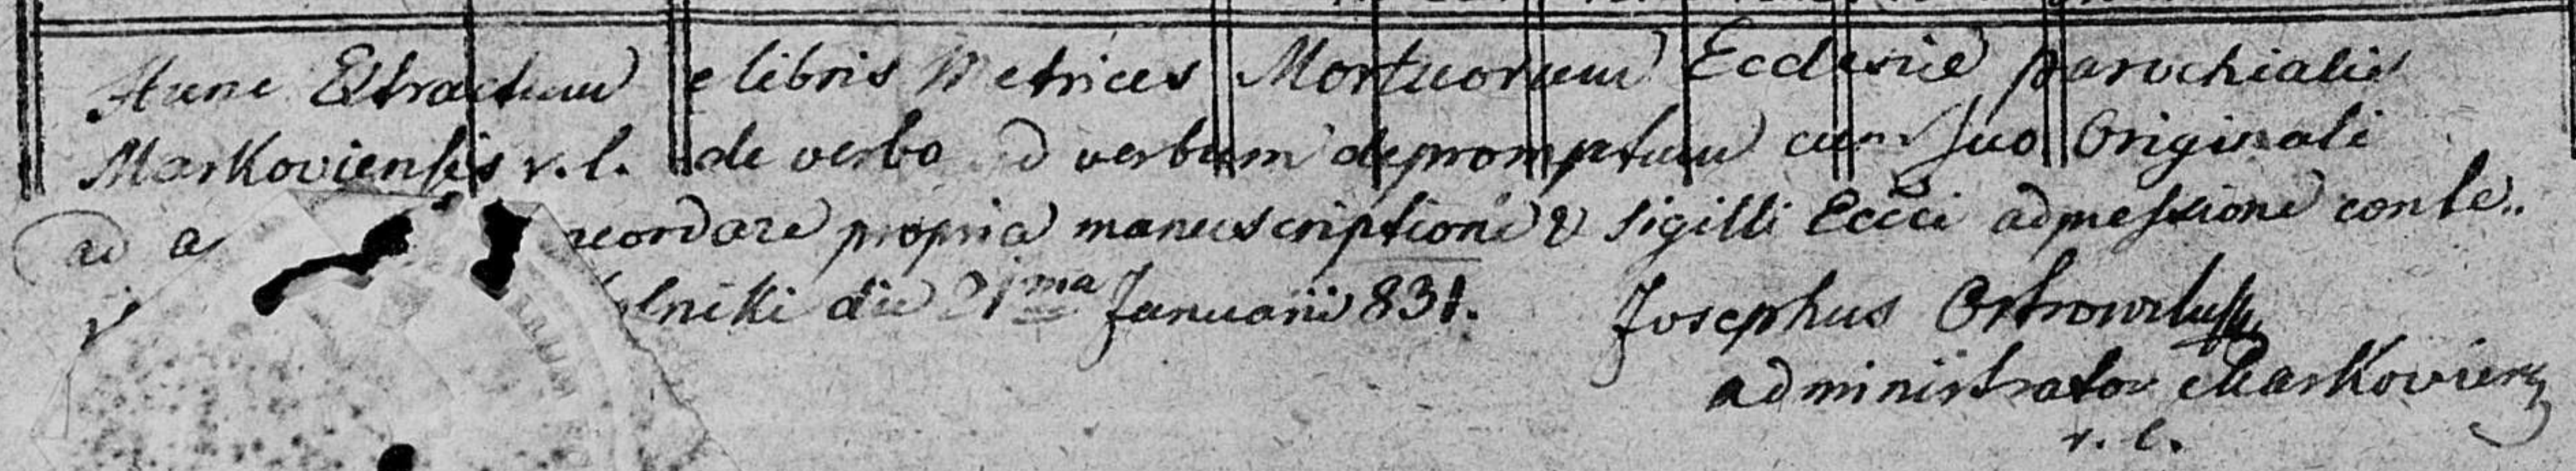 Hunc Extractum e libris Metrices Mortuorum Ecclesiæ parochialis
Markoviensis r. l. de verbo ad verbum depromptum cum suo Originali
ad a ncordare propria manuscriptione & sigilli Eccci adpressione conte..
olniki die 21ma Januarii 831. Josephus
administrator Markovien
r. l.